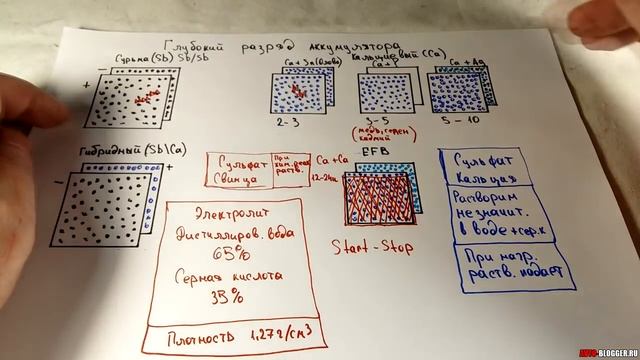 Глубокий разряд аккумулятора
Сурьма (Sb) Sb/Sb
Ca + Sn (олово)
Кальциевый (Ca)
Ca +
Ca + Ag
-
+
2-3
3-5
5-10
Гибридный (Sb\Ca)
-
+
Сульфат
Свинца
При
хим. реак
раств.
Ca + Ca
12-24
EFB
Start-Stop
Сульфат
Кальция
Растворим
незначит.
в воде + сер.к
При нагр.
раств. падает
Электролит
Дистиллиров. вода
65%
Серная кислота
35%
Плотность 1,27 г/см³
AVTO-BLOGGER.RU